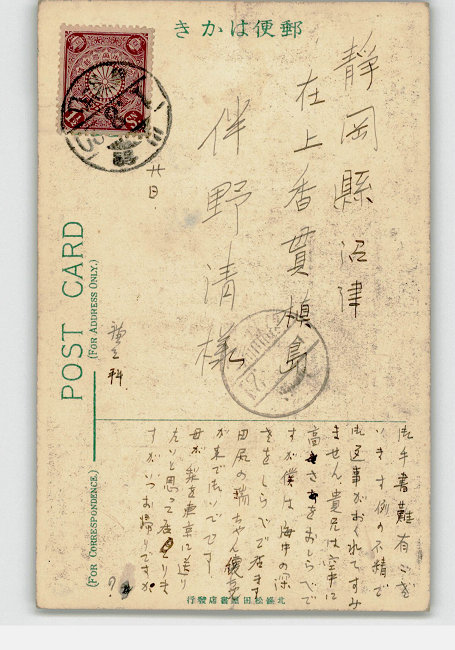 郵便はかき
靜岡縣沼津
在上香貫槙島
伴野清様
廿日
POST CARD
(FOR ADDRESS ONLY.)
(FOR CORRESPONDENCE.)
御手書難有ござ
います例の不精で
御返事がおくれてすみ
ません、貴兄は空中に
高さをおしらべで
すが僕は海中の深
さをしらべて居ます
田尻の瑞ちやん
が来て
母が梨を東京に送り
たいと思って居りま
すがいつお帰りですか
?
北條 田屋書店發行